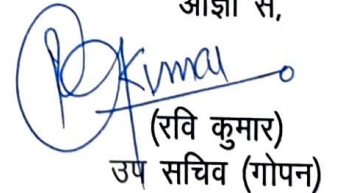 आज्ञा से,
RKumar
(रवि कुमार)
उप सचिव (गोपन)